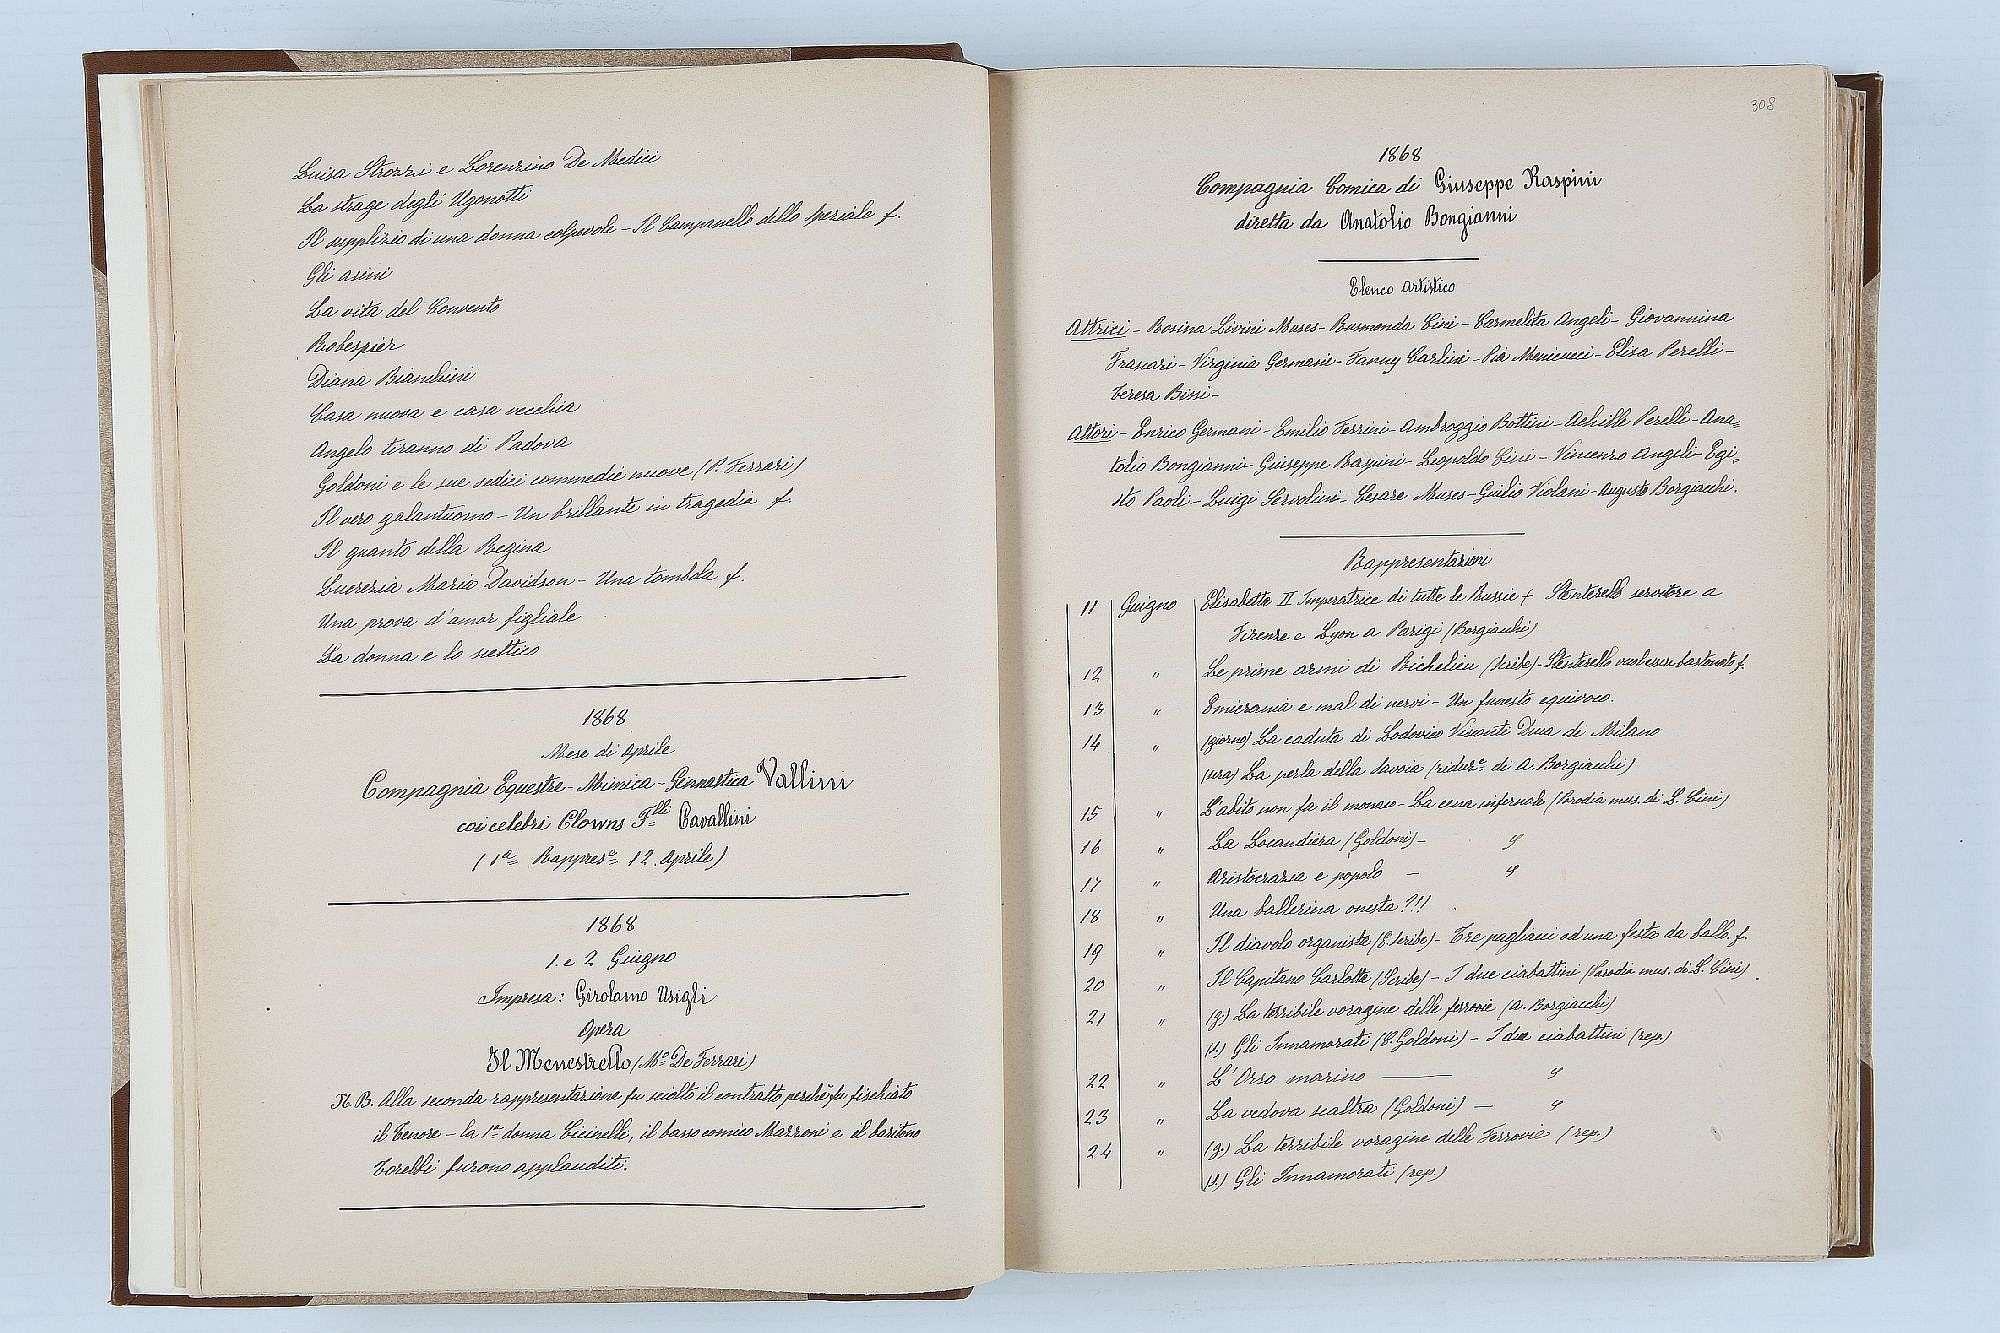 Luisa Strozzi e Lorenzino De Medici
La strage degli Ugonotti
Il supplizio di una donna colpevole - Il Campanello dello speziale f.
Gli asini
La vita del Convento
Robespier
Diana Bianchini
Casa nuova e casa vecchia
Angelo tiranno di Padova
Goldoni e le sue sedici commedie nuove (P. Ferrari)
Il vero galantuomo - Un brillante in tragedia f.
Il guanto della Regina
Lucrezia Maria Davidson - Una tombola f.
Una prova d'amor figliale
La donna e lo scettico
1868
Mese di Aprile
Compagnia Equestre - Mimica - Ginnastica Vallini
coi celebri Clowns F.lli Cavallini
(1a Rappres.e 12 Aprile)
1868
1. e 2 Giugno
Impresa: Girolamo Usigli
Opera
Il Menestrello (Mo De Ferrari)
N. B. Alla seconda rappresentazione fu sciolto il contratto perchè fu fischiato
il Tenore - la 1a donna Cicinelli, il basso comico Mazzoni e il baritono
Torelli furono applauditi.
308
1868
Compagnia Comica di Giuseppe Raspini
diretta da Anatolio Bongianni
Elenco artistico
Attrici - Rosina Livini Muses - Rosmonda Cini - Carmelita Angeli - Giovannina
Trascari - Virginia Germani - Fanny Carlini - Pia Menicucci - Elisa Perelli -
Teresa Bissi -
Attori - Enrico Germani - Emilio Ferrini - Ambroggio Bottini - Achille Perelli - Ana=
tolio Bongianni - Giuseppe Raspini - Leopoldo Cini - Vincenzo Angeli - Egi=
sto Paoli - Luigi Servolini - Cesare Muses - Giulio Violani - Augusto Borgiacchi.
Rappresentazioni
11 Giugno Elisabetta II Imperatrice di tutte le Russie + Stenterello servitore a
Firenze e Lyon a Parigi (Borgiacchi)
12 " Le prime armi di Richelieu (Scribe) - Stenterello vuol esser bastonato f.
13 " Emicrania e mal di nervi - Un funesto equivoco.
14 " (giorno) La caduta di Lodovico Visconti Duca di Milano
(sera) La perla della Savoia (riduz.e di A. Borgiacchi)
15 " L'abito non fa il monaco - La cena infernale (Parodia mus. di L. Cini)
16 " La Locandiera (Goldoni) - "
17 " Aristocrazia e popolo - "
18 " Una ballerina onesta ?!!
19 " Il diavolo organista (E. Scribe) - Tre pagliacci ad una festa da ballo f.
20 " Il Capitano Carlotta (Scribe) - I due ciabattini (Parodia mus. di L. Cini)
21 " (g.) La terribile voragine delle ferrovie (A. Borgiacchi)
(s.) Gli Innamorati (C. Goldoni) - I due ciabattini (rep.)
22 " L'Orso marino - "
23 " La vedova scaltra (Goldoni) - "
24 " (g.) La terribile voragine delle Ferrovie (rep.)
(s.) Gli Innamorati (rep.)